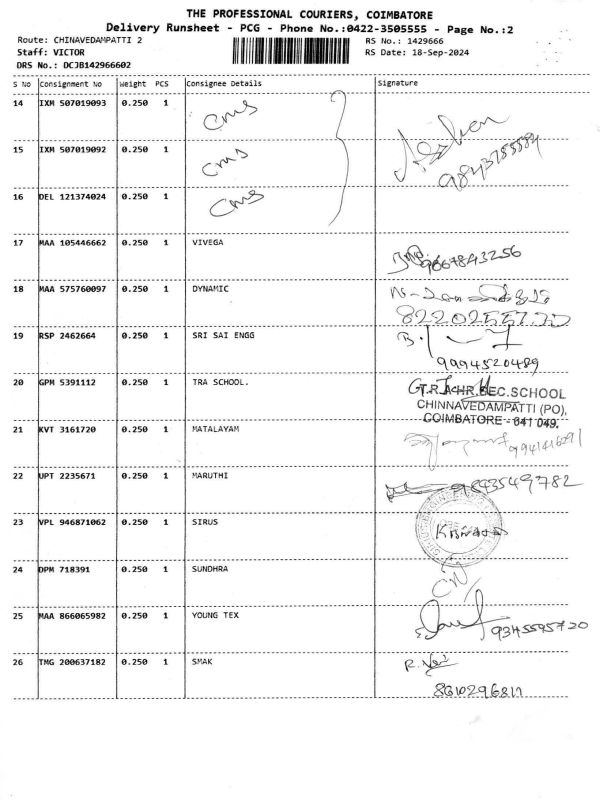 THE PROFESSIONAL COURIERS, COIMBATORE
Delivery Runsheet - PCG - Phone No.:0422-3505555 - Page No.:2
Route: CHINAVEDAMPATTI 2
RS No.: 1429666
Staff: VICTOR
RS Date: 18-Sep-2024
DRS No.: DCJB142966602
S No Consignment No Weight PCS Consignee Details Signature
14 IXM 507019093 0.250 1 cms
15 IXM 507019092 0.250 1 cms 9843785584
16 DEL 121374024 0.250 1 cms
17 MAA 105446662 0.250 1 VIVEGA 9867843256
18 MAA 575760097 0.250 1 DYNAMIC
19 RSP 2462664 0.250 1 SRI SAI ENGG B.
9994520489
20 GPM 5391112 0.250 1 TRA SCHOOL.
G.T.R. HR.SEC.SCHOOL
CHINNAVEDAMPATTI (PO),
COIMBATORE - 641 049.
21 KVT 3161720 0.250 1 MATALAYAM
22 UPT 2235671 0.250 1 MARUTHI 9843549782
23 VPL 946871062 0.250 1 SIRUS
24 DPM 718391 0.250 1 SUNDHRA
25 MAA 866065982 0.250 1 YOUNG TEX 9345595720
26 TMG 200637182 0.250 1 SMAK R.
8610296811